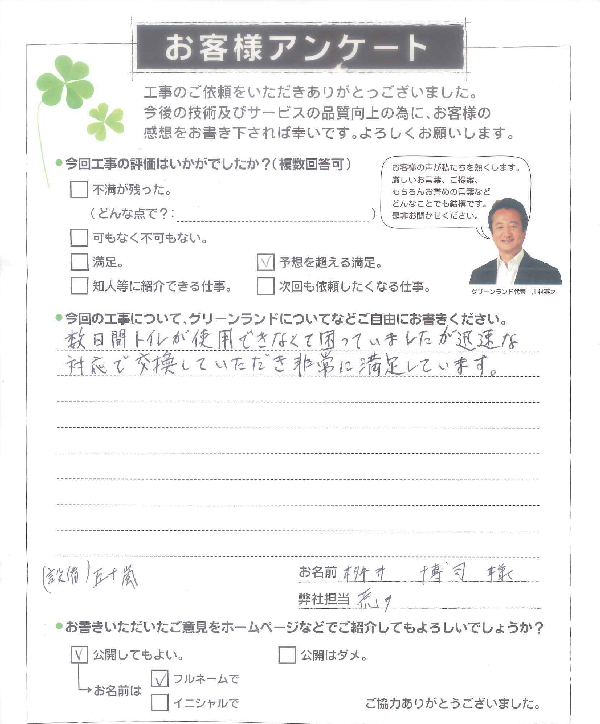 お客様アンケート
工事のご依頼をいただきありがとうございました。
今後の技術及びサービスの品質向上の為に、お客様の
感想をお書き下されば幸いです。よろしくお願いします。
●今回工事の評価はいかがでしたか？（複数回答可）
不満が残った。
（どんな点で？： ）
可もなく不可もない。
満足。
予想を超える満足。
知人等に紹介できる仕事。
次回も依頼したくなる仕事。
お客様の声が私たちを熱くします。
厳しいお言葉、ご提案、
もちろんお褒めの言葉など
どんなことでも結構です。
是非お聞かせください。
グリーンランド代表
●今回の工事について、グリーンランドについてなどご自由にお書きください。
数日間トイレが使用できなくて困っていましたが迅速な
対応で交換していただき非常に満足しています。
(設備)五十嵐
お名前 桝井 博司 様
弊社担当 荒
●お書きいただいたご意見をホームページなどでご紹介してもよろしいでしょうか？
公開してもよい。
公開はダメ。
お名前は
フルネームで
イニシャルで
ご協力ありがとうございました。